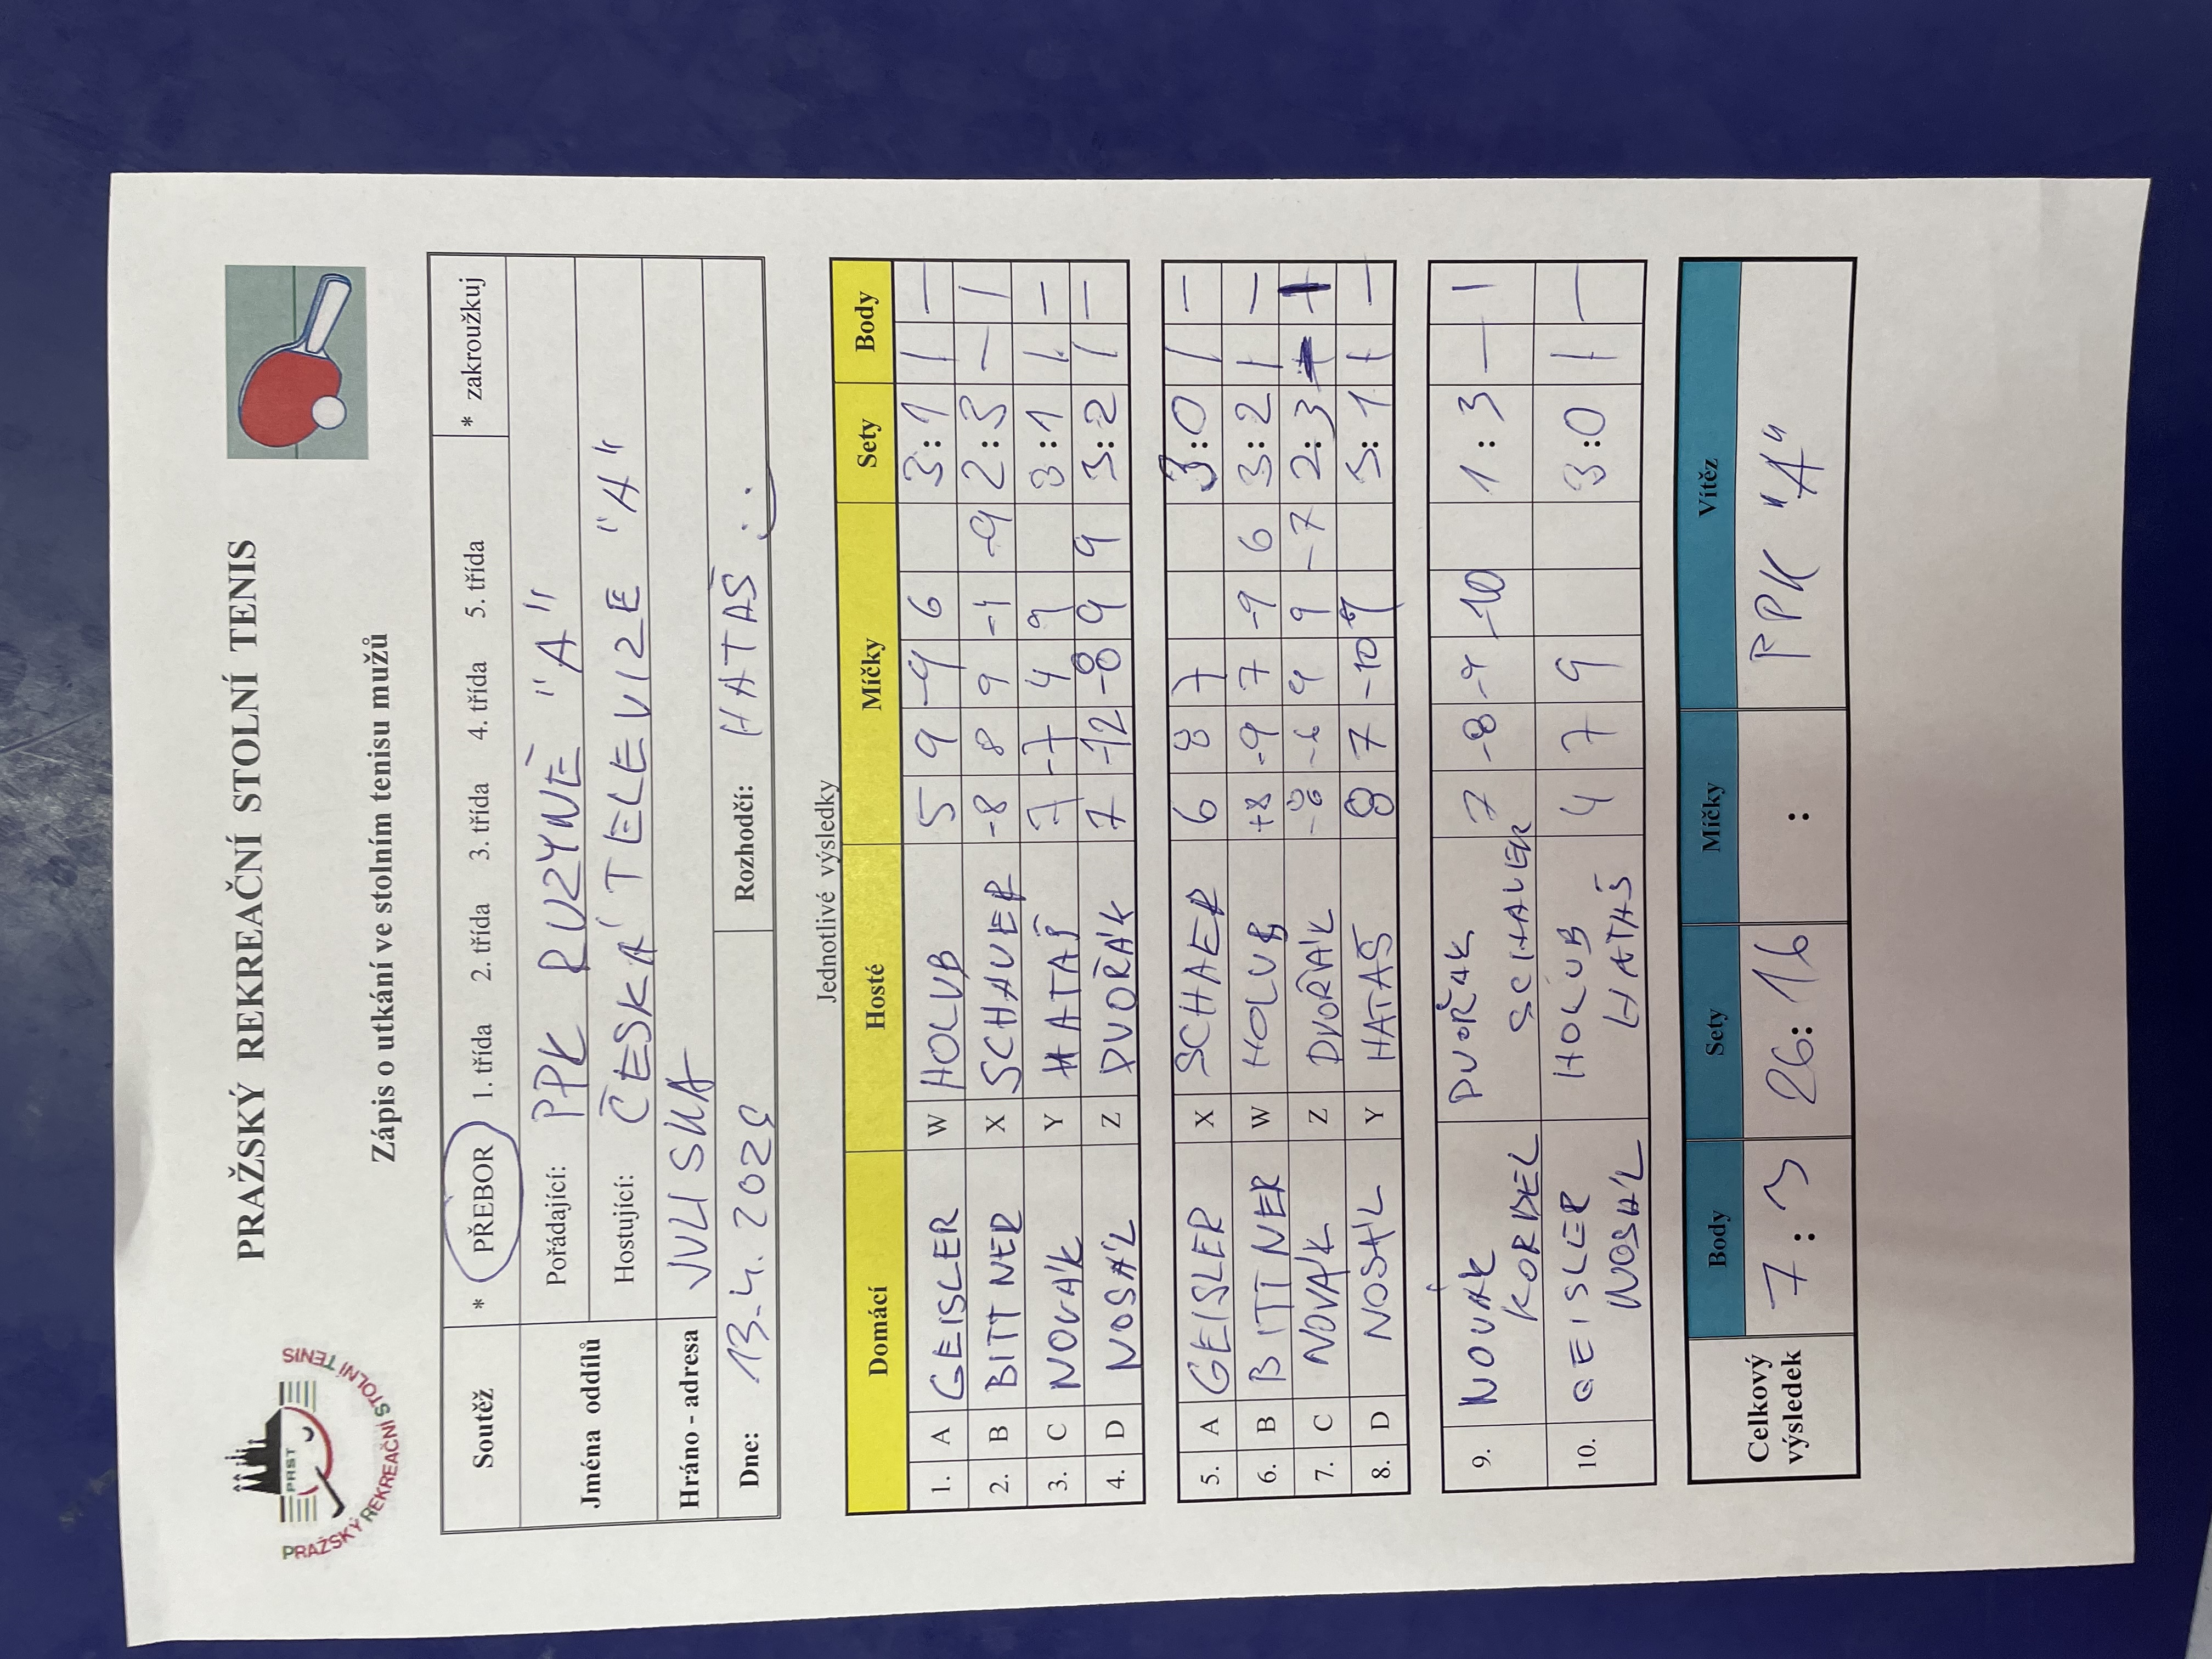 PRAŽSKÝ REKREAČNÍ STOLNÍ TENIS
PRST
PRAŽSKÝ REKREAČNÍ STOLNÍ TENIS
Zápis o utkání ve stolním tenisu mužů
Soutěž * PŘEBOR 1. třída 2. třída 3. třída 4. třída 5. třída * zakroužkuj
Jména oddílů Pořádající: PPK RUZYNĚ "A"
Hostující: ČESKÁ TELEVIZE "A"
Hráno - adresa JULISKA
Dne: 13.4. 2024 Rozhodčí: HATAŠ
Jednotlivé výsledky
Domácí Hosté Míčky Sety Body
1. A GEISLER W HOLUB 5 9 -9 6 3:1 1 –
2. B BITTNER X SCHAUER -8 8 9 -9 2:3 – 1
3. C NOVÁK Y HATAŠ 7 -7 4 9 3:1 1 –
4. D NOSÁL Z DVOŘÁK 7 -12 -8 9 9 3:2 1 –
5. A GEISLER X SCHAER 6 8 7 3:0 1 –
6. B BITTNER W HOLUB +8 -9 7 -9 6 3:2 1 –
7. C NOVÁK Z DVOŘÁK -6 9 9 -7 2:3
8. D NOSÁL Y HATAŠ 8 7 -10 3:1 1 –
9. NOVÁK DVOŘÁK 7 -8 -10 1:3 – 1
KORDEL SCHAUER
10. GEISLER HOLUB 4 7 9 3:0 1 –
NOSÁL HATAŠ
Celkový výsledek Body Sety Míčky Vítěz
7:3 26:16 : PPK "A"